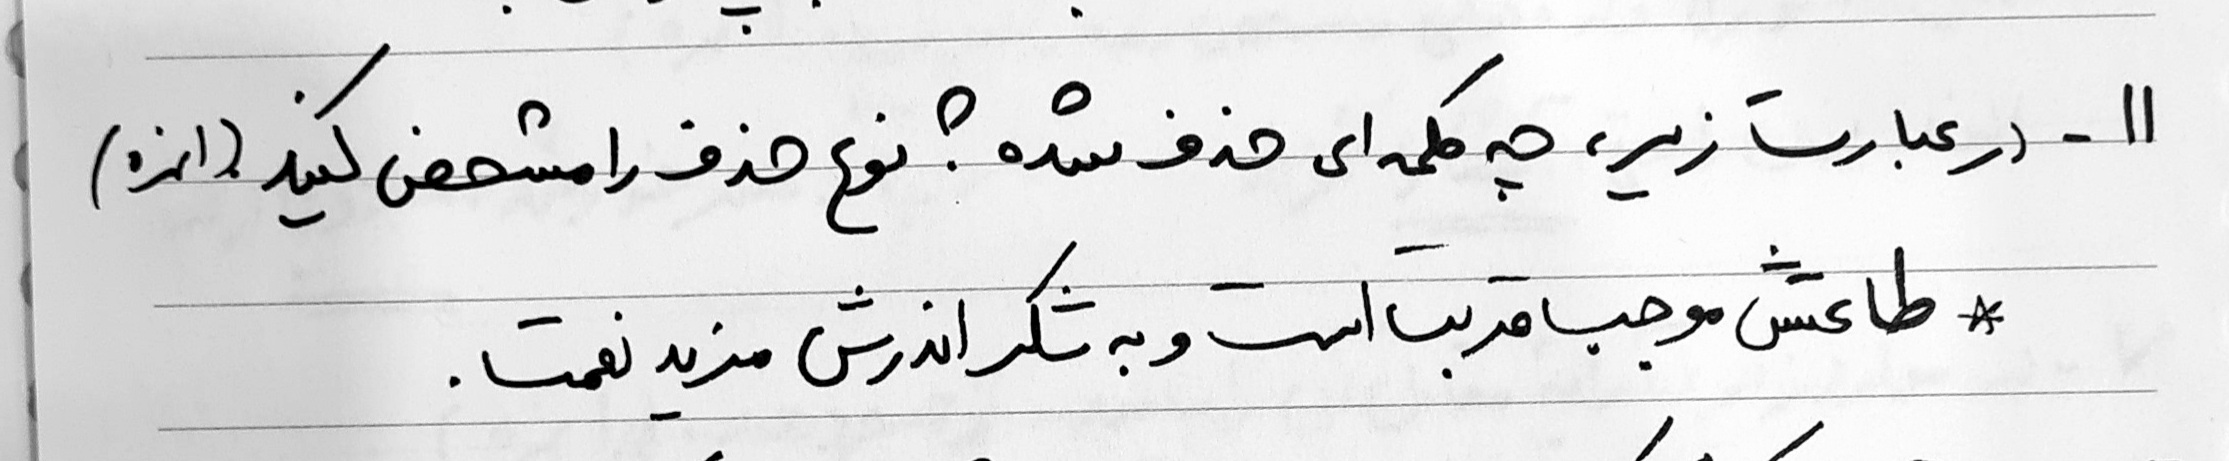 ۱۱ - در عبارت زیر، چه کلمه ای حذف شده ؟ نوع حذف را مشخص کنید. (۱نمره)
* طاعتش موجب قربت است و به شکر اندرش مزید نعمت.